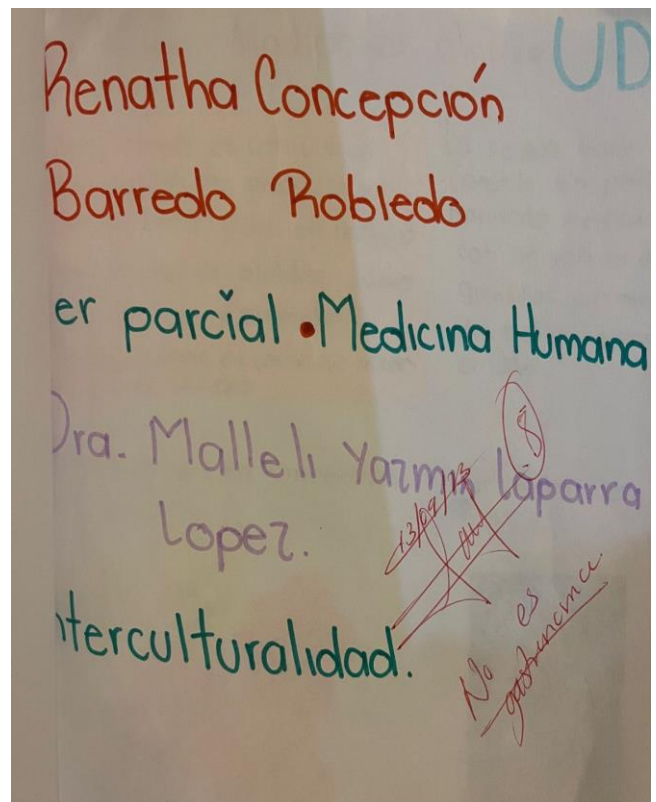 UD
Renatha Concepción
Barredo Robledo
er parcial • Medicina Humana
Dra. Malleli Yazmin Laparra
Lopez.
nterculturalidad.
8
No es